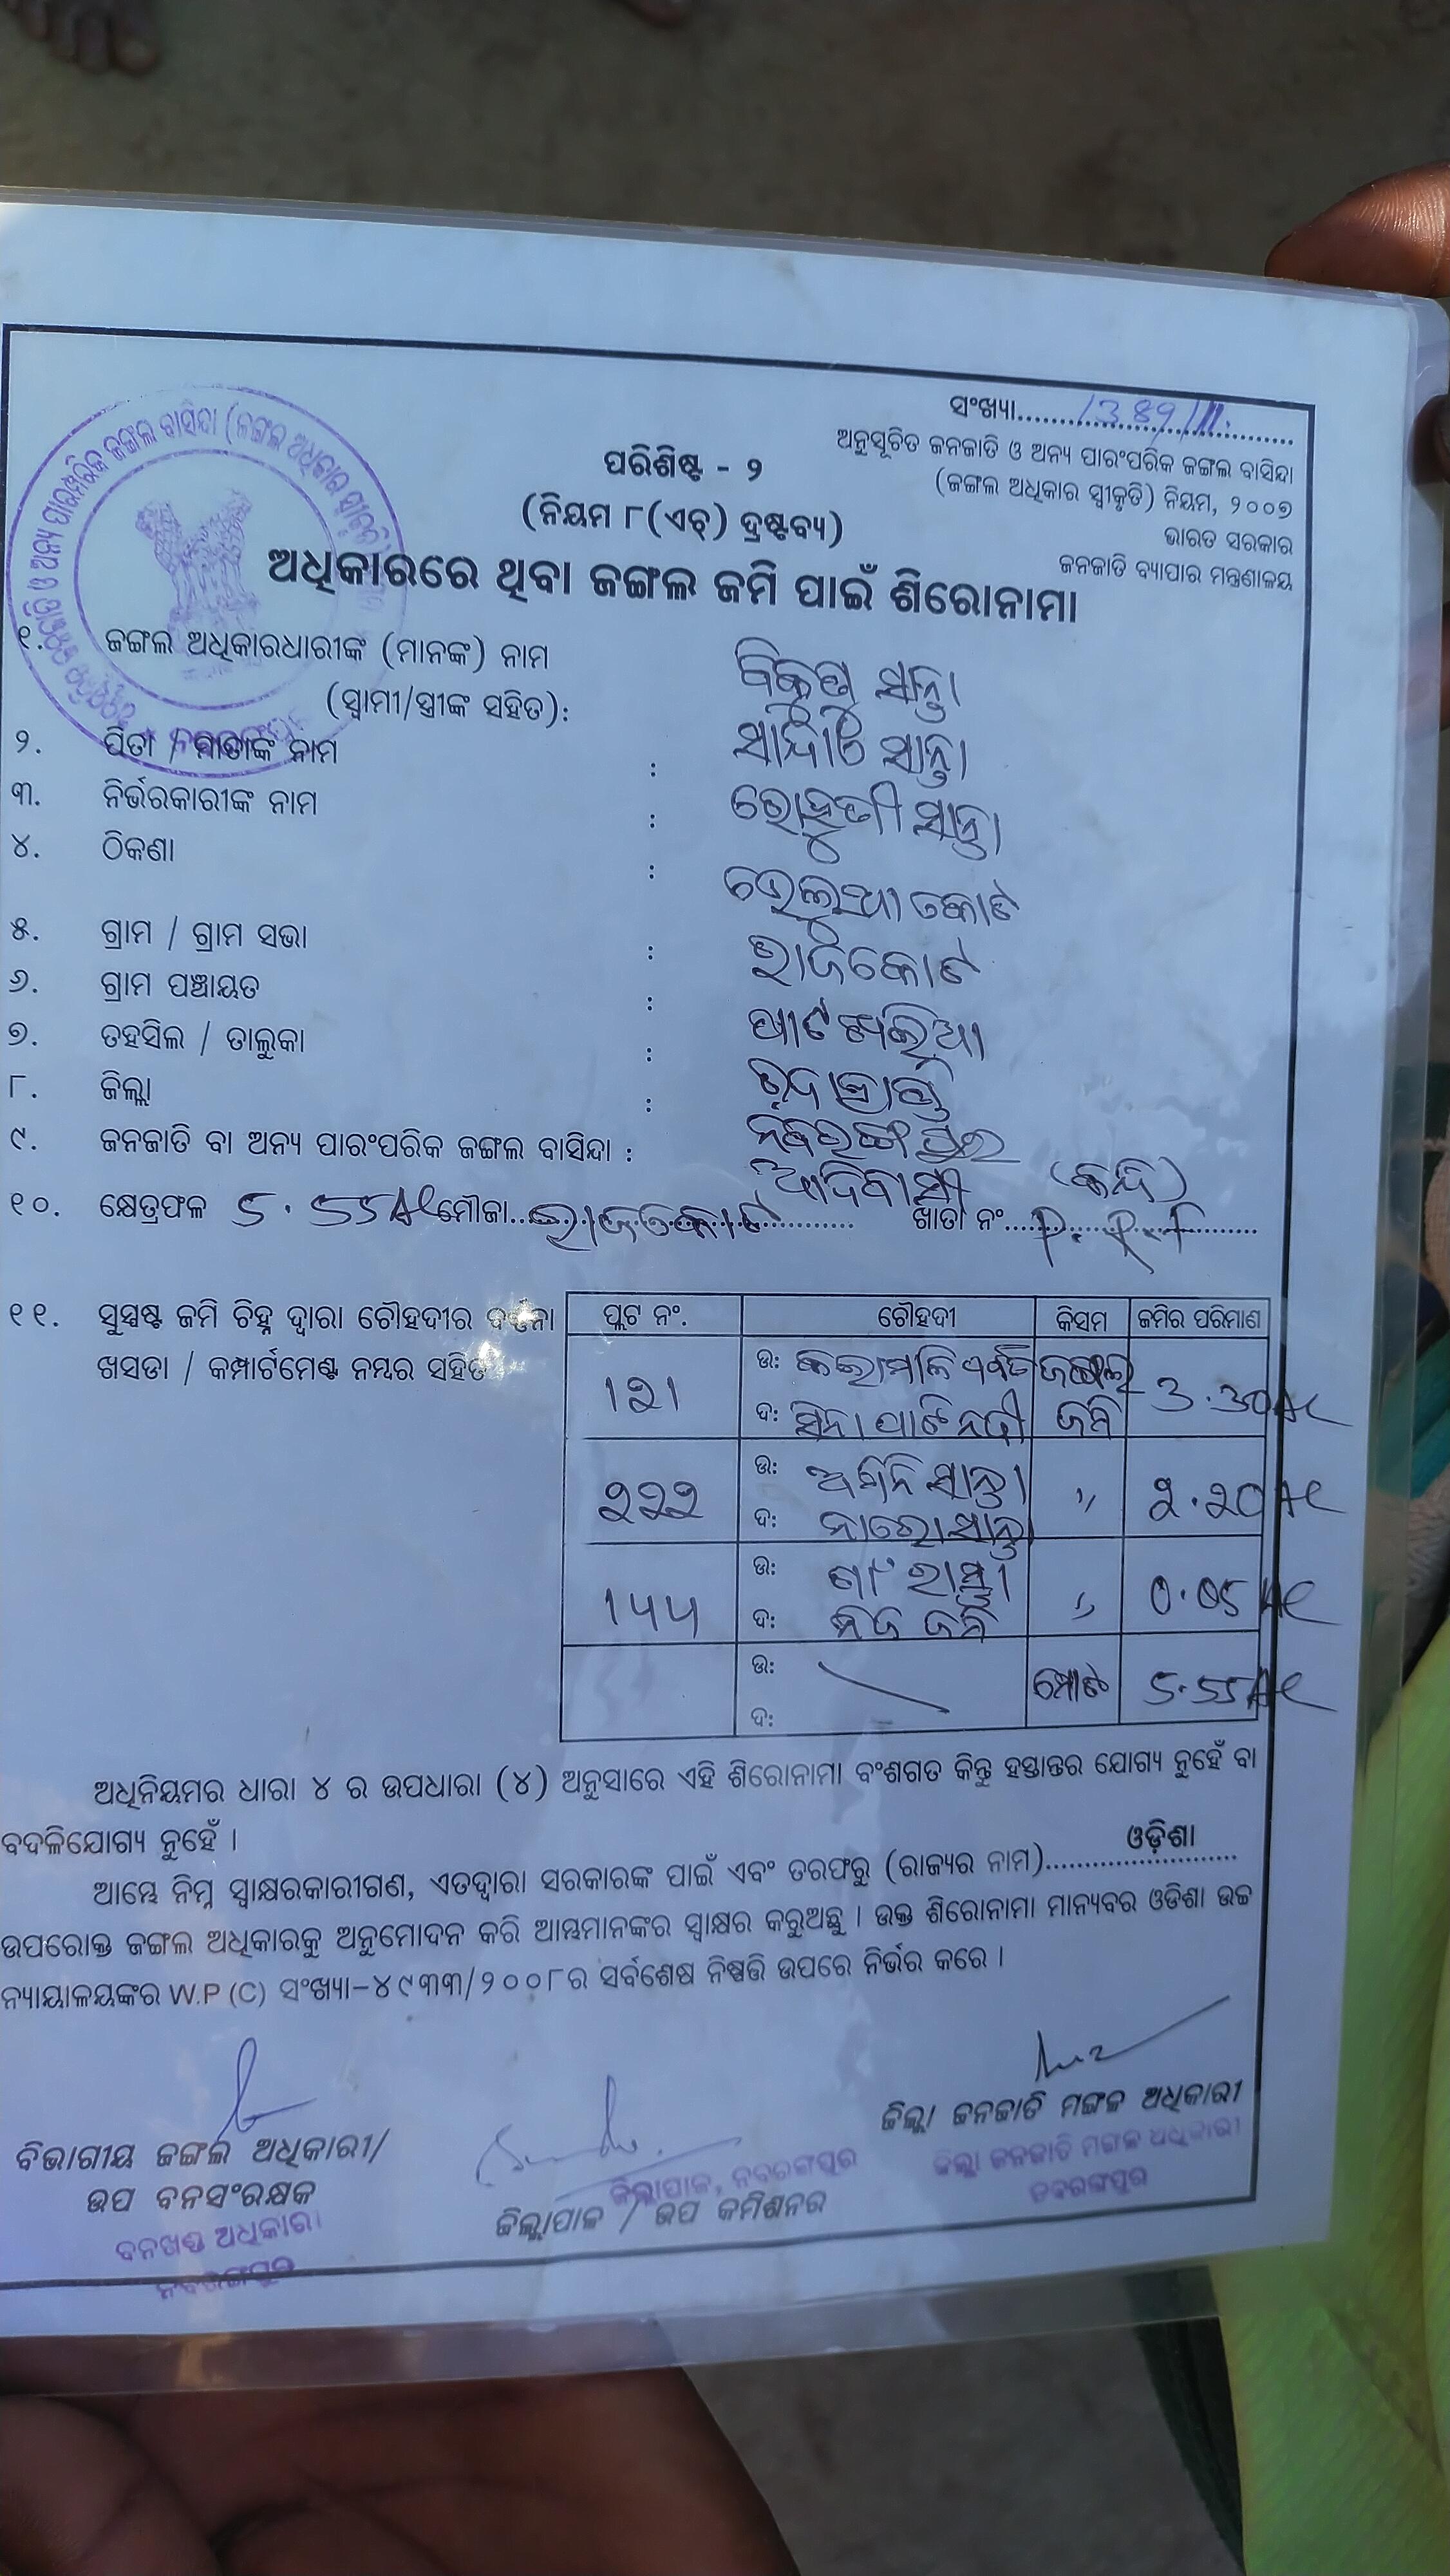 ସଂଖ୍ୟା.....1389/111.
ଅନୁସୂଚିତ ଜନଜାତି ଓ ଅନ୍ୟ ପାରଂପରିକ ଜଙ୍ଗଲ ବାସିନ୍ଦା
(ଜଙ୍ଗଲ ଅଧିକାର ସ୍ୱୀକୃତି) ନିୟମ, ୨୦୦୭
ଭାରତ ସରକାର
ଜନଜାତି ବ୍ୟାପାର ମନ୍ତ୍ରଣାଳୟ
ପରିଶିଷ୍ଟ - ୨
(ନିୟମ ୮(ଏଚ୍) ଦ୍ରଷ୍ଟବ୍ୟ)
ଅଧିକାରରେ ଥିବା ଜଙ୍ଗଲ ଜମି ପାଇଁ ଶିରୋନାମା
୧. ଜଙ୍ଗଲ ଅଧିକାରଧାରୀଙ୍କ (ମାନଙ୍କ) ନାମ
(ସ୍ୱାମୀ/ସ୍ତ୍ରୀଙ୍କ ସହିତ): ସାନ୍ତା
୨. ପିତା / ମାତାଙ୍କ ନାମ : ସାନ୍ତା
୩. ନିର୍ଭରକାରୀଙ୍କ ନାମ : ସାନ୍ତା
୪. ଠିକଣା :
୫. ଗ୍ରାମ / ଗ୍ରାମ ସଭା : ରାଜକୋଟ
୬. ଗ୍ରାମ ପଞ୍ଚାୟତ :
୭. ତହସିଲ / ତାଲୁକା :
୮. ଜିଲ୍ଲା : ନବରଙ୍ଗପୁର
୯. ଜନଜାତି ବା ଅନ୍ୟ ପାରଂପରିକ ଜଙ୍ଗଲ ବାସିନ୍ଦା : ଆଦିବାସୀ
୧୦. କ୍ଷେତ୍ରଫଳ 5.55 Ac ମୌଜା.....ରାଜକୋଟ..... ଖାତା ନଂ.....P.R.F
୧୧. ସୁସ୍ପଷ୍ଟ ଜମି ଚିହ୍ନ ଦ୍ୱାରା ଚୌହଦୀର ବର୍ଣ୍ଣନା
ଖସଡା / କମ୍ପାର୍ଟମେଣ୍ଟ ନମ୍ବର ସହିତ
ପ୍ଲଟ ନଂ. ଚୌହଦୀ କିସମ ଜମିର ପରିମାଣ
୧୨୧ ଉ: ଜଙ୍ଗଲ 3.30 Ac
ଦ: ନଦୀ ଜମି
୨୨୨ ଉ: ସାନ୍ତା ,, 2.20 Ac
ଦ: ସାନ୍ତା
୧୪୪ ଉ: ରାସ୍ତା ,, 0.05 Ac
ଦ: ନିଜ ଜମି
ଉ: ମୋଟ 5.55 Ac
ଦ:
ଅଧିନିୟମର ଧାରା ୪ ର ଉପଧାରା (୪) ଅନୁସାରେ ଏହି ଶିରୋନାମା ବଂଶଗତ କିନ୍ତୁ ହସ୍ତାନ୍ତର ଯୋଗ୍ୟ ନୁହେଁ ବା
ବଦଳିଯୋଗ୍ୟ ନୁହେଁ ।
ଆମ୍ଭେ ନିମ୍ନ ସ୍ୱାକ୍ଷରକାରୀଗଣ, ଏତଦ୍ୱାରା ସରକାରଙ୍କ ପାଇଁ ଏବଂ ତରଫରୁ (ରାଜ୍ୟର ନାମ).....ଓଡ଼ିଶା.....
ଉପରୋକ୍ତ ଜଙ୍ଗଲ ଅଧିକାରକୁ ଅନୁମୋଦନ କରି ଆମ୍ଭମାନଙ୍କର ସ୍ୱାକ୍ଷର କରୁଅଛୁ । ଉକ୍ତ ଶିରୋନାମା ମାନ୍ୟବର ଓଡିଶା ଉଚ୍ଚ
ନ୍ୟାୟାଳୟଙ୍କର W.P (C) ସଂଖ୍ୟା-୪୯୩୩/୨୦୦୮ର ସର୍ବଶେଷ ନିଷ୍ପତ୍ତି ଉପରେ ନିର୍ଭର କରେ ।
ବିଭାଗୀୟ ଜଙ୍ଗଲ ଅଧିକାରୀ/
ଉପ ବନସଂରକ୍ଷକ
ବନଖଣ୍ଡ ଅଧିକାରୀ
ନବରଙ୍ଗପୁର
ଜିଲ୍ଲାପାଳ, ନବରଙ୍ଗପୁର
ଜିଲ୍ଲାପାଳ / ଉପ କମିଶନର
ଜିଲ୍ଲା ଜନଜାତି ମଙ୍ଗଳ ଅଧିକାରୀ
ଜିଲ୍ଲା ଜନଜାତି ମଙ୍ଗଳ ଅଧିକାରୀ
ନବରଙ୍ଗପୁର